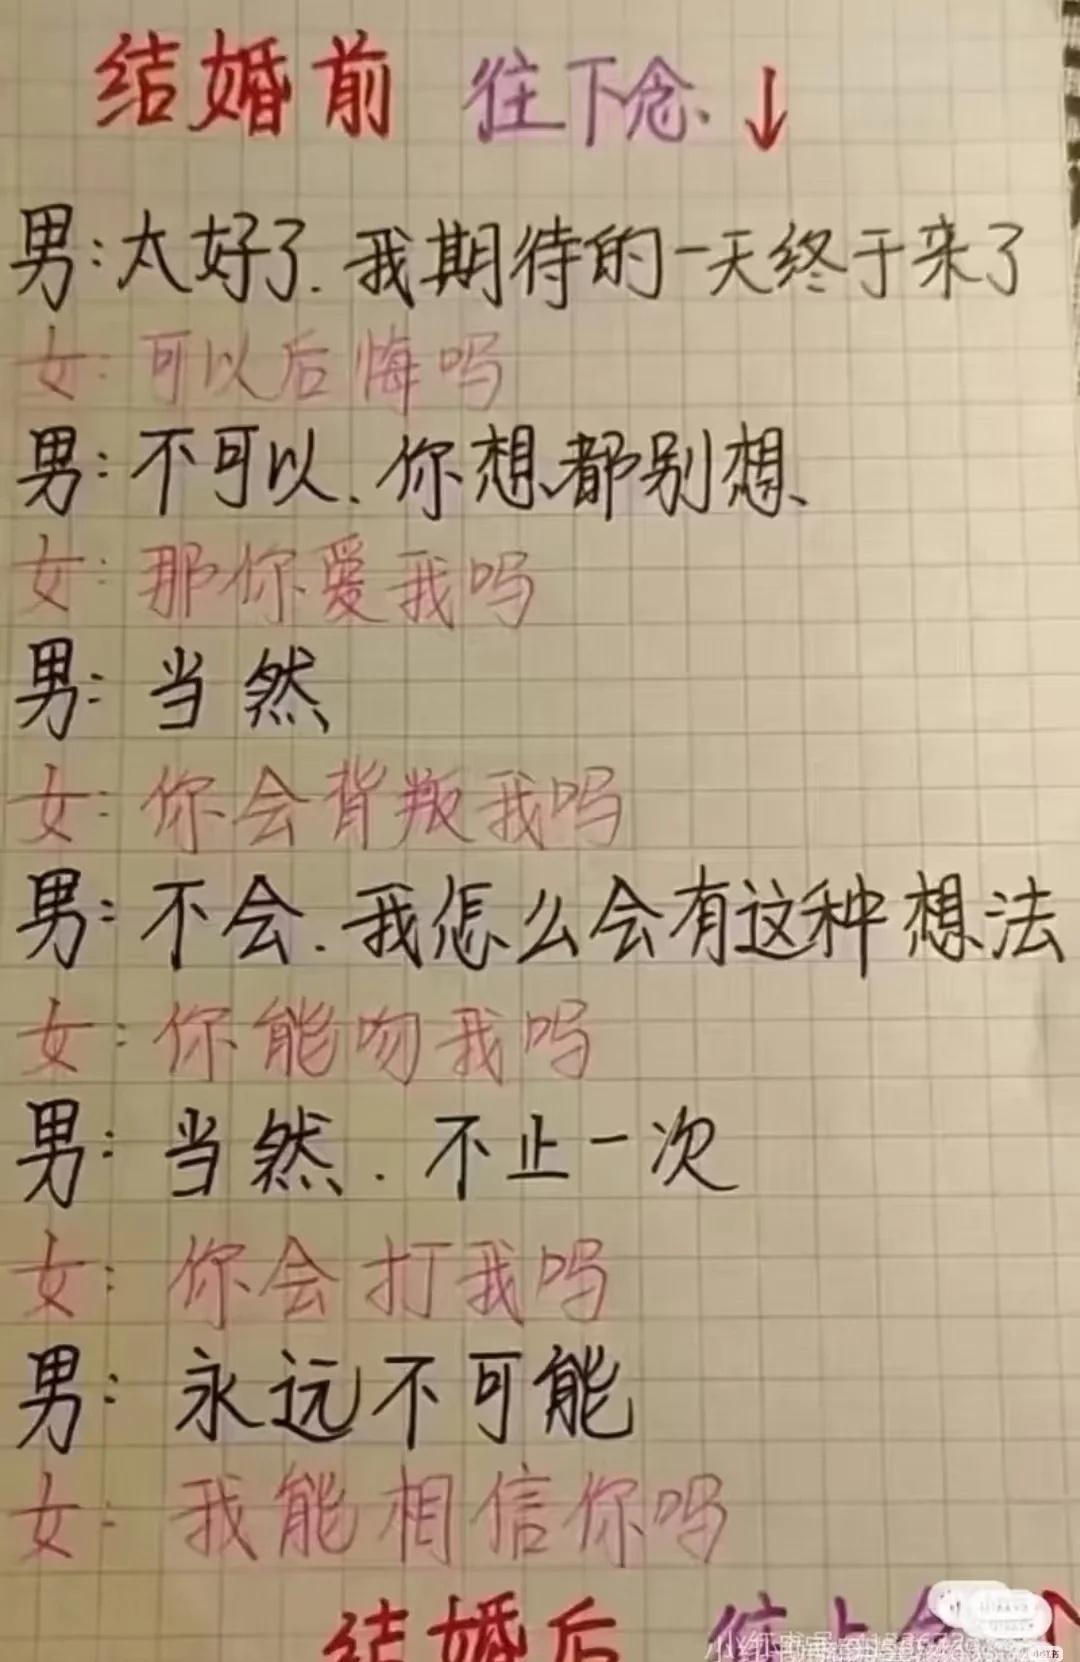 结婚前 往下念 ↓
男:太好了.我期待的一天终于来了
女:可以后悔吗
男:不可以.你想都别想
女:那你爱我吗
男:当然
女:你会背叛我吗
男:不会.我怎么会有这种想法
女:你能吻我吗
男:当然.不止一次
女:你会打我吗
男:永远不可能
女:我能相信你吗
结婚后 往上念
小红书号